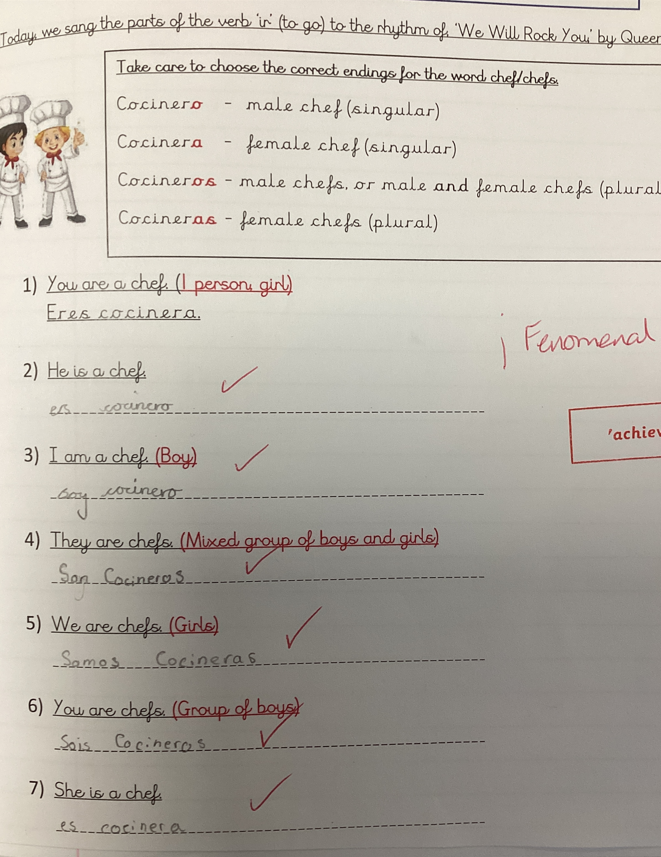 Today, we sang the parts of the verb 'ir' (to go) to the rhythm of, 'We Will Rock You,' by Queen
Take care to choose the correct endings for the word chef/chefs.
Cocinero - male chef (singular)
Cocinera - female chef (singular)
Cocineros - male chefs, or male and female chefs (plural
Cocineras - female chefs (plural)
1) You are a chef. (1 person, girl)
Eres cocinera.
¡ Fenomenal
2) He is a chef.
es cocinero
'achiev
3) I am a chef. (Boy)
soy cocinero
4) They are chefs. (Mixed group of boys and girls)
Son Cocineros
5) We are chefs. (Girls)
Somos Cocineras
6) You are chefs. (Group of boys)
Sois Cocineros
7) She is a chef.
es cocinera